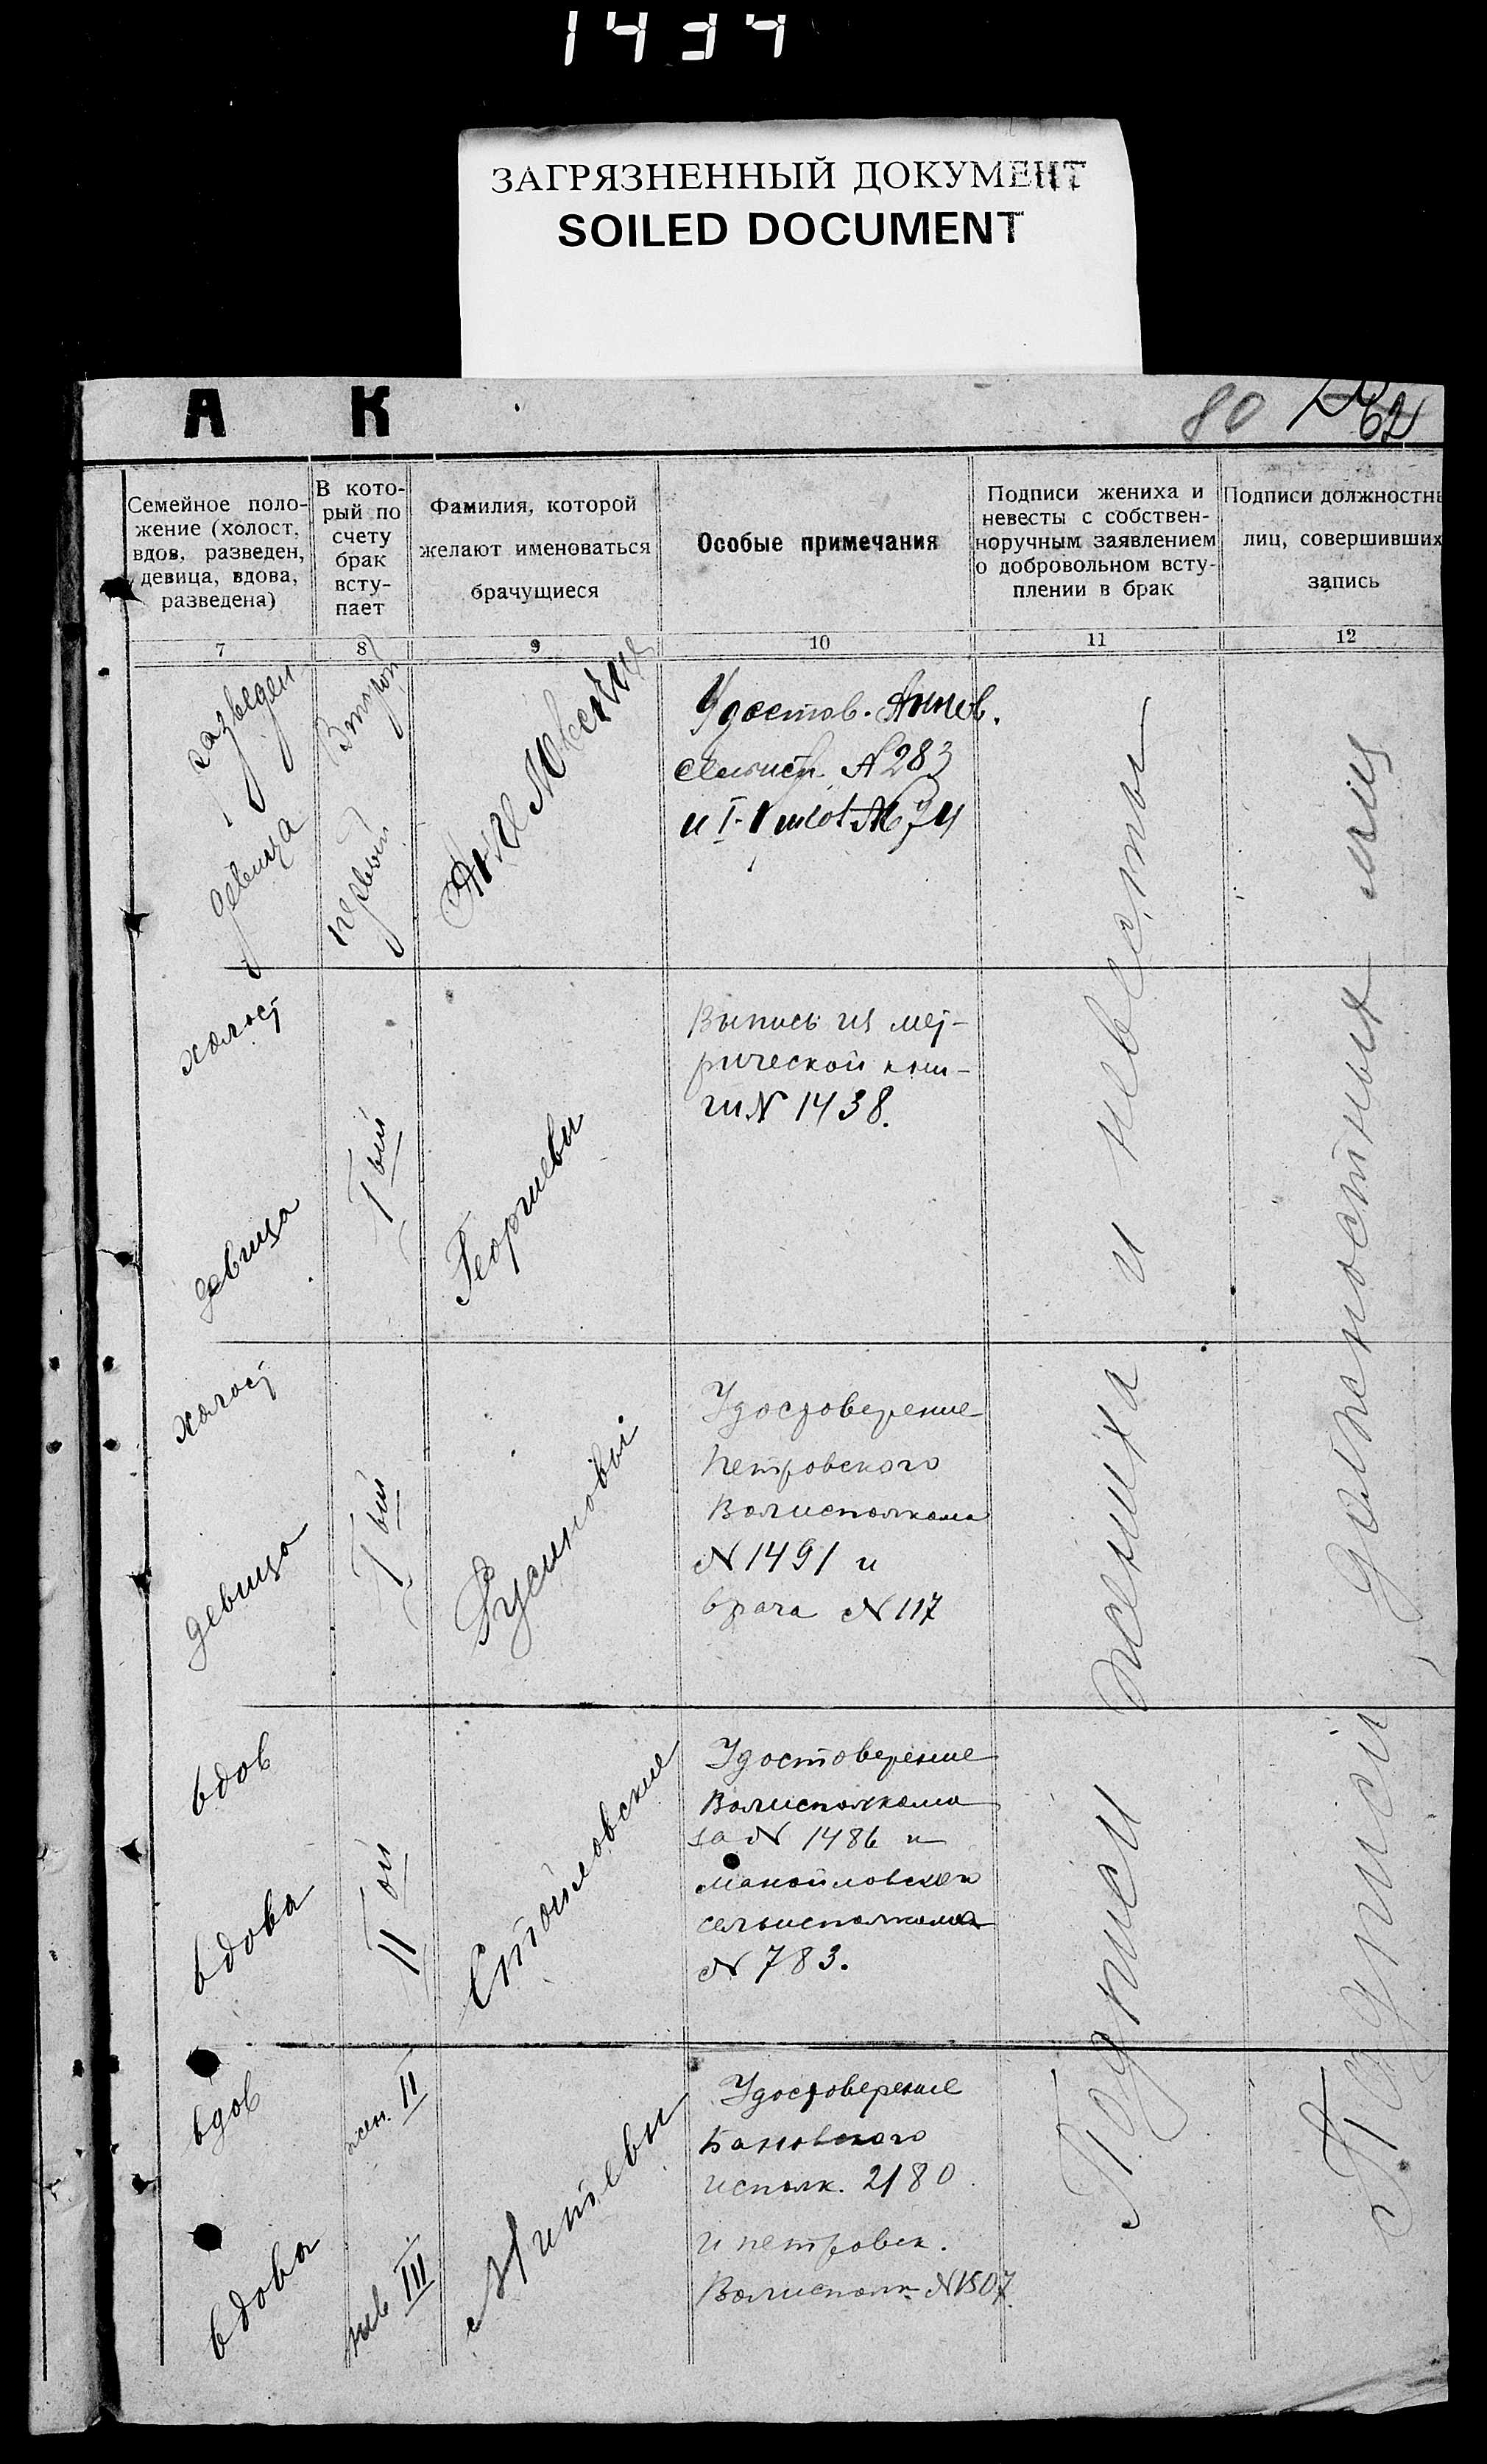 1434
ЗАГРЯЗНЕННЫЙ ДОКУМЕНТ
SOILED DOCUMENT
А К
80
62
Семейное поло-
жение (холост,
вдов, разведен,
девица, вдова,
разведена)
В кото-
рый по
счету
брак
всту-
пает
Фамилия, которой
желают именоваться
брачущиеся
Особые примечания
Подписи жениха и
невесты с собствен-
норучным заявлением
о добровольном всту-
плении в брак
Подписи должностны
лиц, совершивших
запись
7 8 9 10 11 12
разведен
девица
Второй
первый
Удостов.
№ 283
и
холост
девица
I ый
Георгиевы
Выпись из мет-
рической кни-
ги N 1438.
холост
девица
I ый
Русиновы
Удостоверение
Петровского
Волисполкома
N 1491 и
врача N 117
вдов
вдова
II ой
Стойловские
Удостоверение
Волисполкома
за N 1486 и
Манойловского
сельисполкома
N 783.
вдов
вдова
жен. II
нев III
Митевы
Удостоверение
Бановского
исполк. 2180
и петровск.
Волисполк N 1507.
Подписи жениха и невесты
Подписи должностных лиц